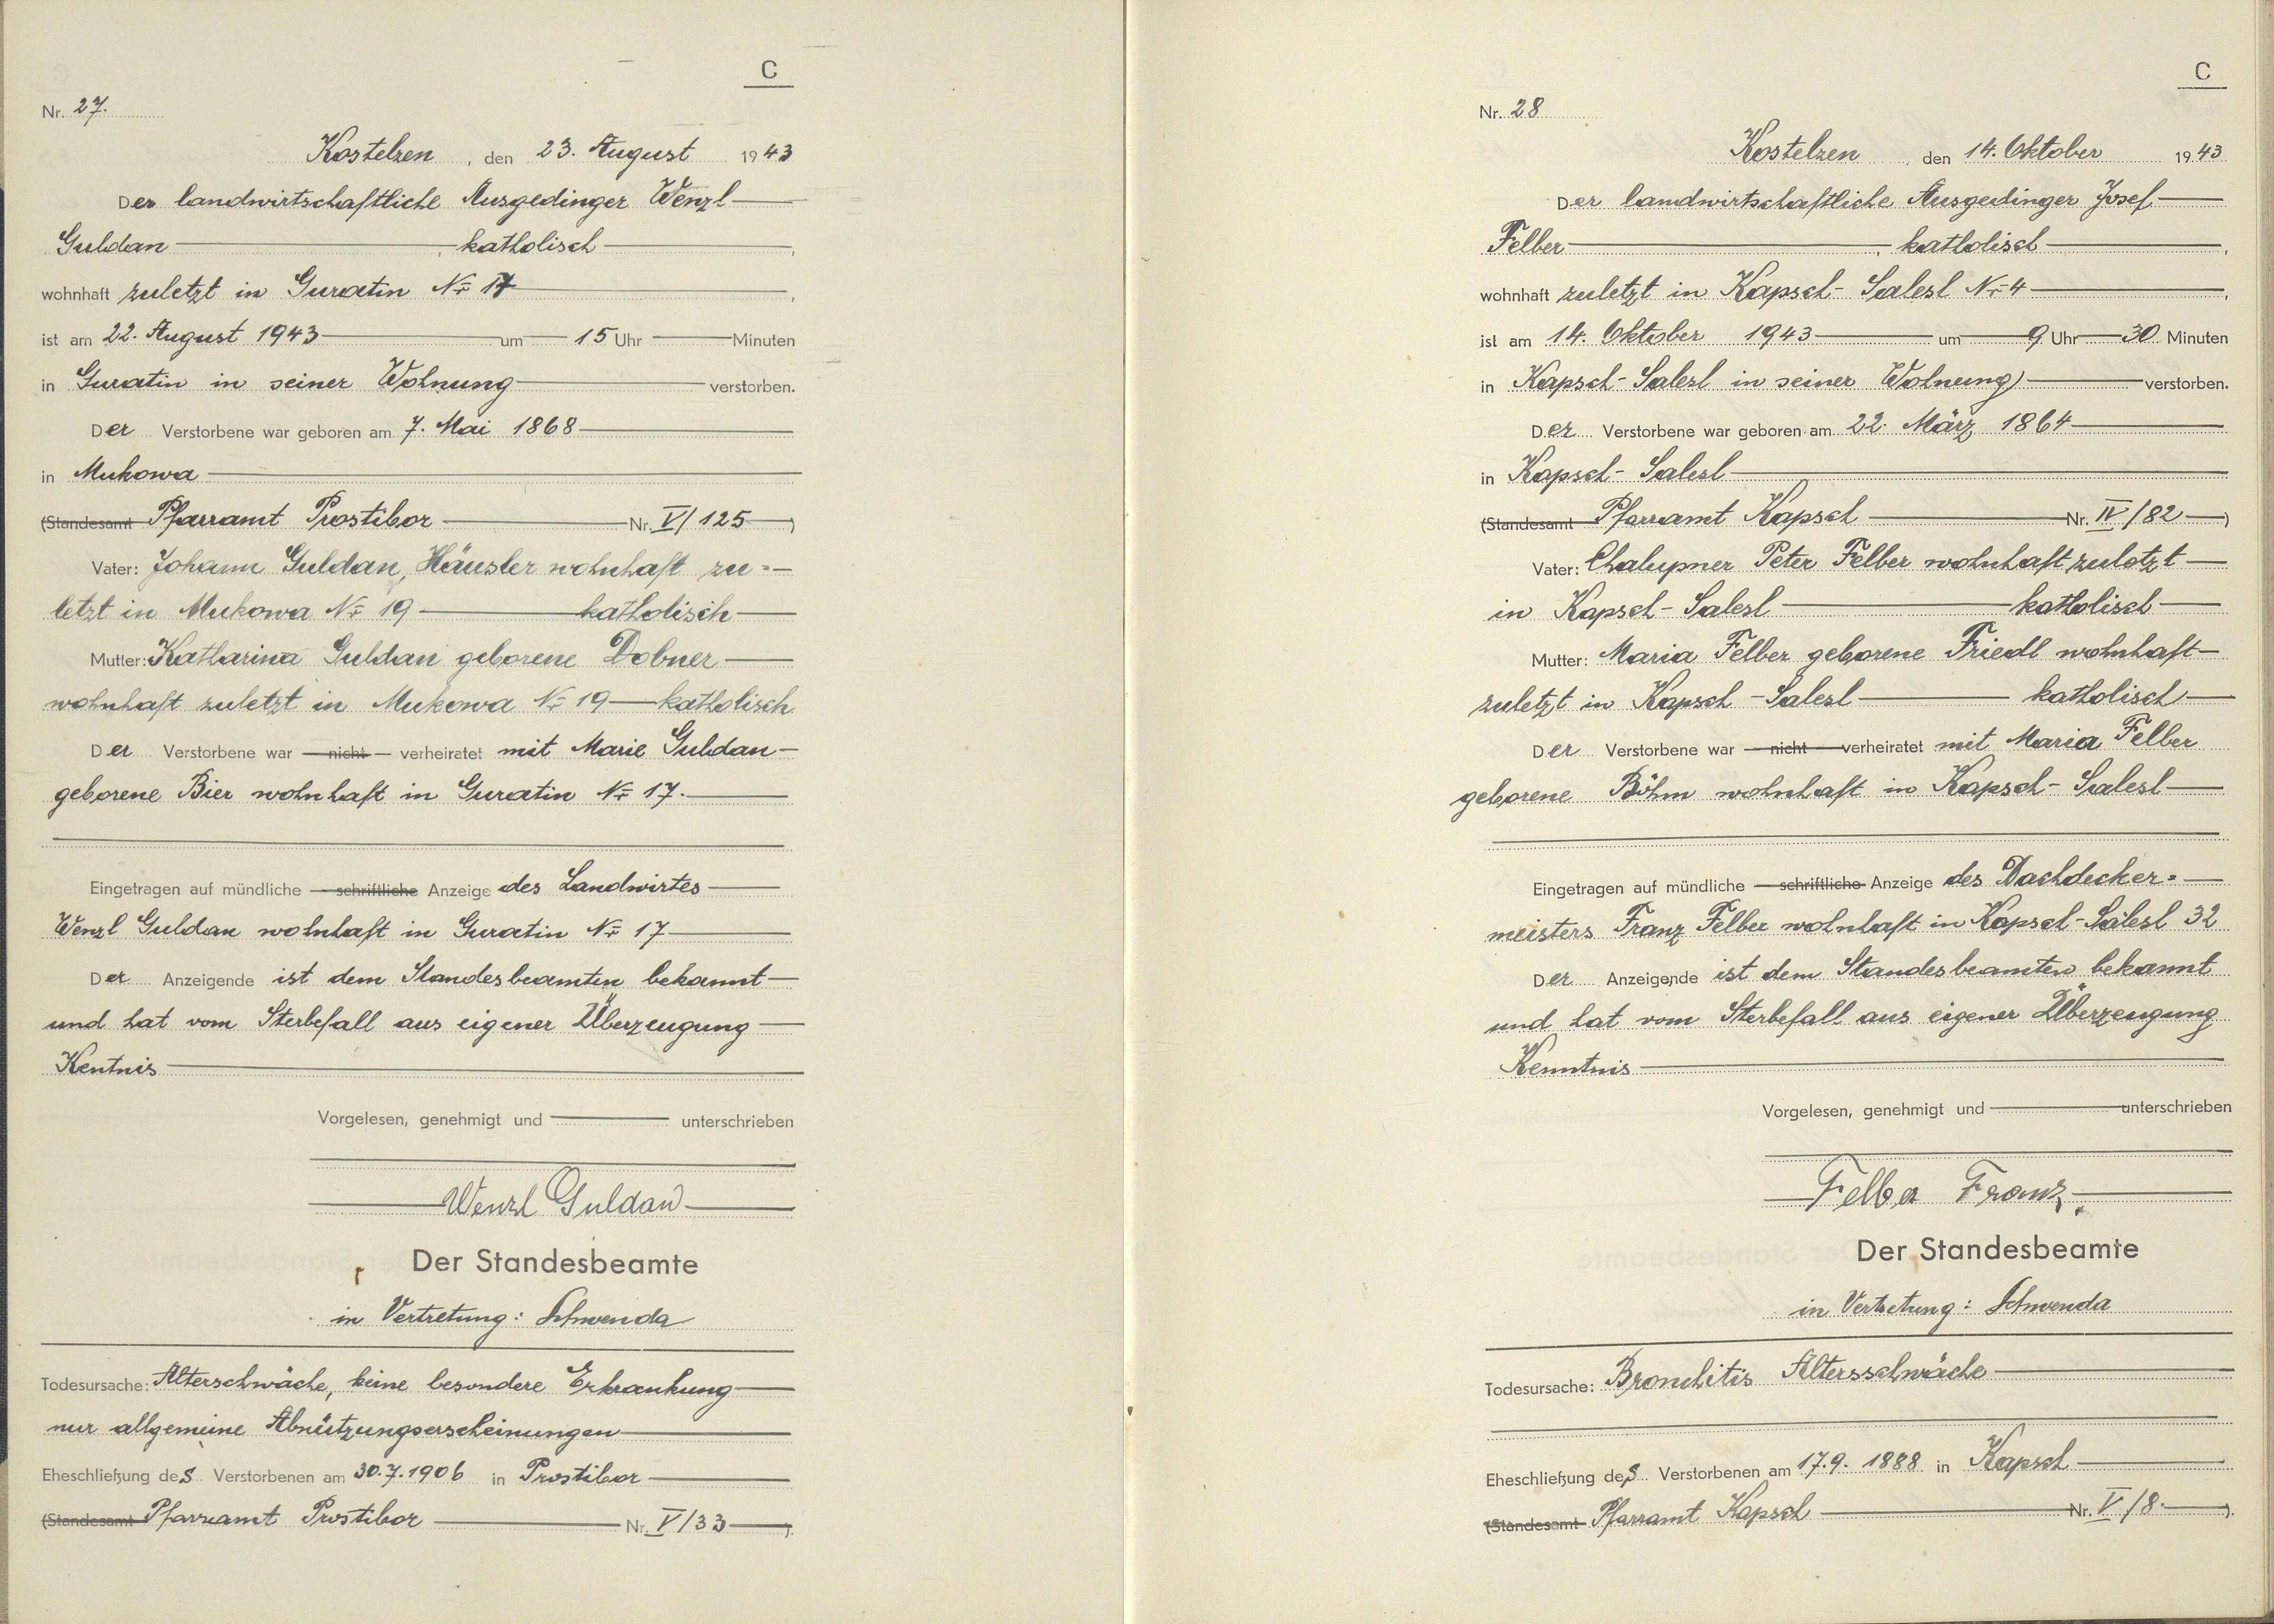 C
Nr. 27.
Kostelzen, den 23. August 1943
Der landwirtschaftliche Ausgedinger Wenzl
Guldan, katholisch,
wohnhaft zuletzt in Guratin Nr 17,
ist am 22. August 1943 um 15 Uhr Minuten
in Guratin in seiner Wohnung verstorben.
Der Verstorbene war geboren am 7. Mai 1868
in Mukowa
(Standesamt Pfarramt Prostibor Nr. V/125)
Vater: Johann Guldan, Häusler wohnhaft zu=
letzt in Mukowa Nr 19 katholisch
Mutter: Katharina Guldan geborene Dobner
wohnhaft zuletzt in Mukowa Nr 19 katholisch
Der Verstorbene war nicht verheiratet mit Marie Guldan
geborene Bier wohnhaft in Guratin Nr 17.
Eingetragen auf mündliche schriftliche Anzeige des Landwirtes
Wenzl Guldan wohnhaft in Guratin Nr 17
Der Anzeigende ist dem Standesbeamten bekannt
und hat vom Sterbefall aus eigener Überzeugung
Kentnis
Vorgelesen, genehmigt und unterschrieben
Wenzl Guldan
Der Standesbeamte
in Vertretung: Schwenda
Todesursache: Alterschwäche, keine besondere Erkrankung
nur allgemeine Abnützungserscheinungen
Eheschließung des Verstorbenen am 30.7.1906 in Prostibor
(Standesamt Pfarramt Prostibor Nr. V/33).
C
Nr. 28
Kostelzen, den 14. Oktober 1943
Der landwirtschaftliche Ausgedinger Josef
Felber, katholisch,
wohnhaft zuletzt in Kapsch-Salesl Nr 4,
ist am 14. Oktober 1943 um 9 Uhr 30 Minuten
in Kapsch-Salesl in seiner Wohnung verstorben.
Der Verstorbene war geboren am 22. März 1864
in Kapsch-Salesl
(Standesamt Pfarramt Kapsch Nr. IV/82)
Vater: Chalupner Peter Felber wohnhaft zuletzt
in Kapsch-Salesl katholisch
Mutter: Maria Felber geborene Friedl wohnhaft
zuletzt in Kapsch-Salesl katholisch
Der Verstorbene war nicht verheiratet mit Maria Felber
geborene Böhm wohnhaft in Kapsch-Salesl
Eingetragen auf mündliche schriftliche Anzeige des Dachdecker=
meisters Franz Felber wohnhaft in Kapsch-Salesl 32
Der Anzeigende ist dem Standesbeamten bekannt
und hat vom Sterbefall aus eigener Überzeugung
Kenntnis
Vorgelesen, genehmigt und unterschrieben
Felber Franz.
Der Standesbeamte
in Vertretung: Schwenda
Todesursache: Bronchitis Altersschwäche
Eheschließung des Verstorbenen am 17.9. 1888 in Kapsch
(Standesamt Pfarramt Kapsch Nr. V/8.).